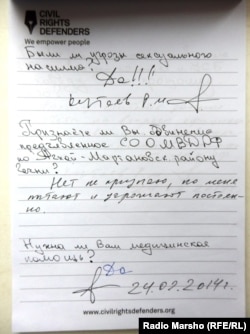 CIVIL
RIGHTS
DEFENDERS
We empower people
Были ли угрозы сексуального
насилия?
Да!!!
Кутаев Р.М
Признаёте ли Вы обвинение
предъявленное СО О МВД РФ
по Ачхой-Мартановск. району
вины?
Нет не признаю, но меня
пытают и угрожают постоян-
но.
Нужна ли Вам медицинская
помощь?
Да
24.02.2014г.
www.civilrightsdefenders.org
Radio Marsho (RFE/RL)